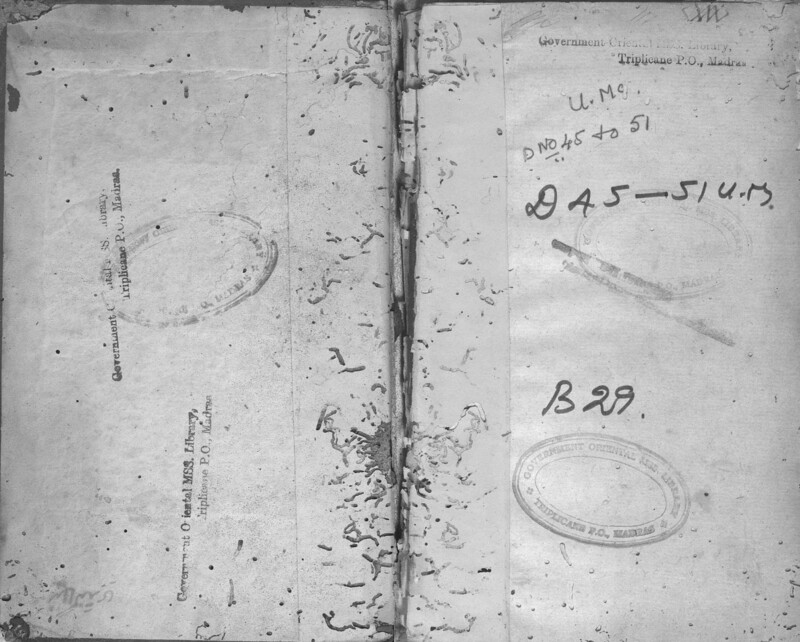 Government Oriental MSS. Library,
Triplicane P.O., Madras.
Government Oriental MSS. Library,
Triplicane P.O., Madras
Government Oriental MSS. Library,
Triplicane P.O., Madras
D No 45 to 51
D 45 — 51 U.M.
B 29.
GOVERNMENT ORIENTAL MSS. LIBRARY
TRIPLICANE P.O., MADRAS